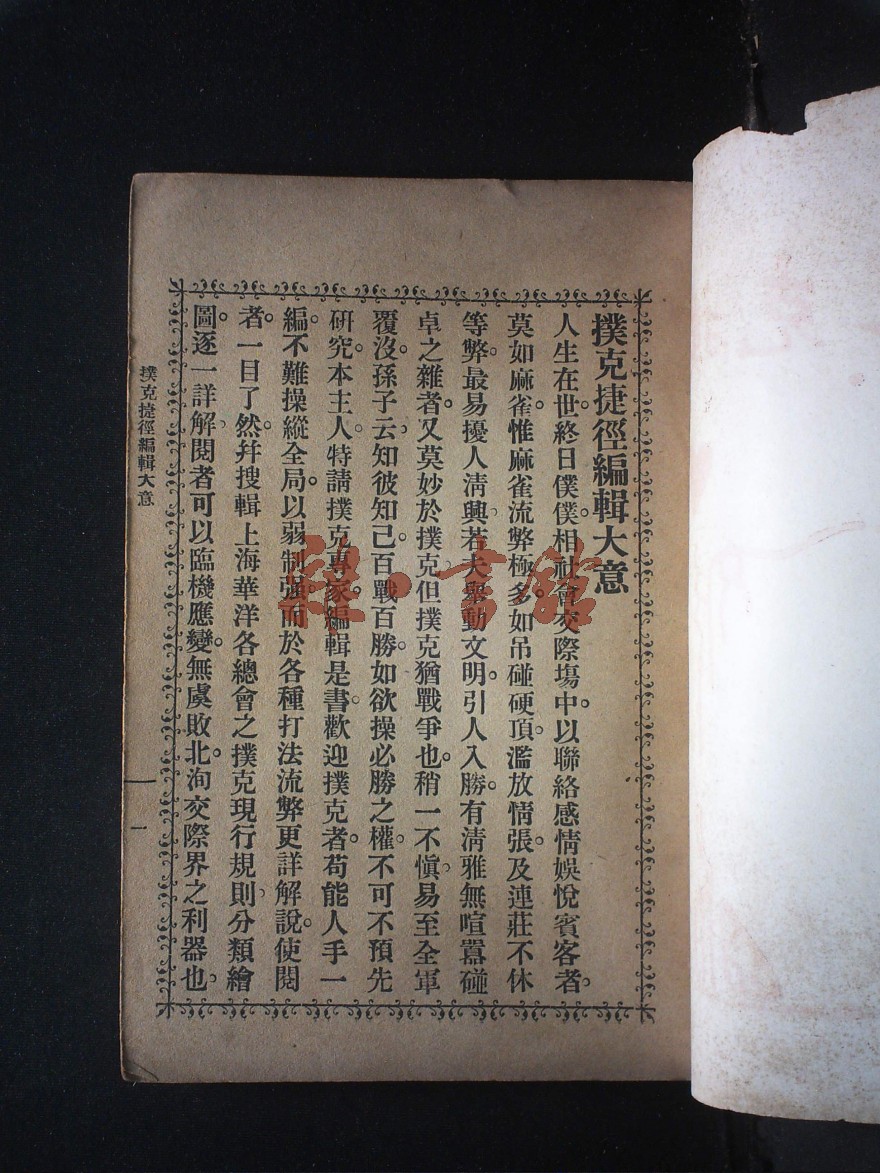 撲克捷徑編輯大意
人生在世。終日僕僕。相社會交際塲中。以聯絡感情娛悅賓客者。
莫如麻雀。惟麻雀流弊極多。如吊碰硬頂。濫放情張。及連莊不休
等弊。最易擾人淸興。若夫舉動文明。引人入勝。有淸雅無喧囂碰
卓之雜者。又莫妙於撲克。但撲克猶戰爭也。稍一不愼。易至全軍
覆沒。孫子云。知彼知己。百戰百勝。如欲操必勝之權。不可不預先
硏究。本主人特請撲克專家。編輯是書。歡迎撲克者。苟能人手一
編。不難操縱全局。以弱制强。而於各種打法流弊更詳解說。使閱
者。一目了然。幷搜輯上海華洋各總會之撲克現行規則。分類繪
圖。逐一詳解。閱者可以臨機應變。無虞敗北。洵交際界之利器也。
撲克捷徑編輯大意
一
程·書館